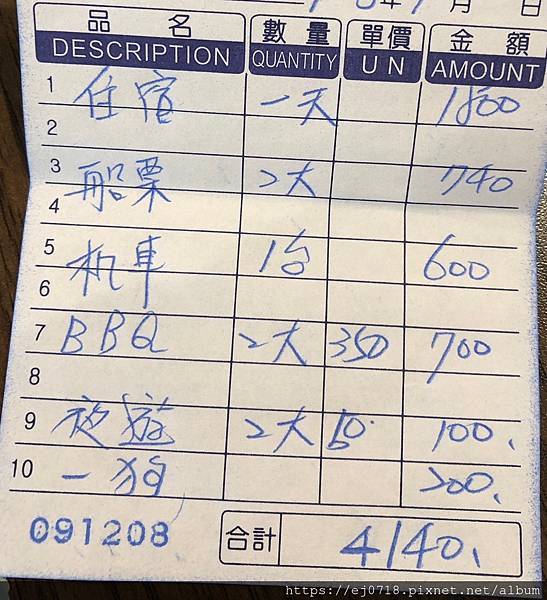 年 月 日
品 名 數 量 單價 金 額
DESCRIPTION QUANTITY U N AMOUNT
1 住宿 一天 1800
2
3 船票 2大 740
4
5 机車 1台 600
6
7 BBQ 2大 350 700
8
9 夜遊 2大 50. 100.
10 一狗 200.
091208 合計 4140.
https://ej0718.pixnet.net/album